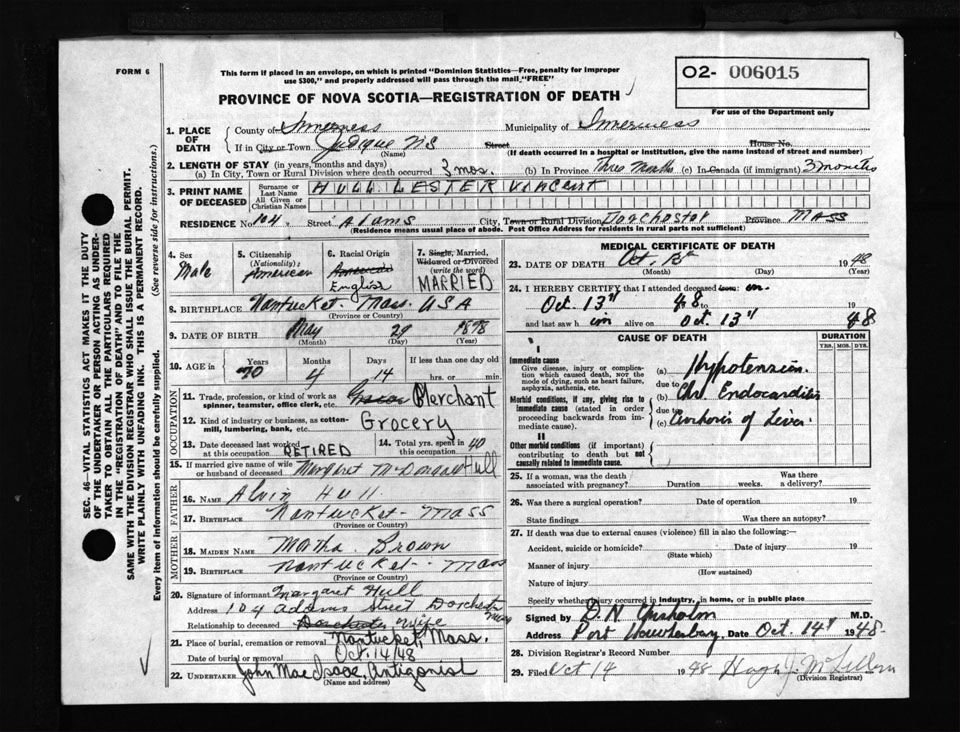 FORM 6
This form if placed in an envelope, on which is printed "Dominion Statistics—Free, penalty for improper
use $300," and properly addressed will pass through the mail "FREE"
O2- 006015
For use of the Department only
PROVINCE OF NOVA SCOTIA—REGISTRATION OF DEATH
1. PLACE OF DEATH
County of Inverness Municipality of Inverness
If in City or Town Judique NS Street House No.
(Name) (If death occurred in a hospital or institution, give the name instead of street and number)
2. LENGTH OF STAY (in years, months and days)
(a) In City, Town or Rural Division where death occurred 3 mos. (b) In Province Three Months (c) In Canada (if immigrant) 3 months
3. PRINT NAME OF DECEASED
Surname or Last Name HULL LESTER VINCENT
All Given or Christian Names
RESIDENCE No. 104 Street Adams City, Town or Rural Division Dorchester Province MASS
(Residence means usual place of abode. Post Office Address for residents in rural parts not sufficient)
4. Sex Male
5. Citizenship (Nationality) American
6. Racial Origin American English
7. Single, Married, Widowed or Divorced (write the word) MARRIED
8. BIRTHPLACE Nantucket - Mass. USA
(Province or Country)
9. DATE OF BIRTH May 29 1878
(Month) (Day) (Year)
10. AGE in Years 70 Months 4 Days 14 If less than one day old hrs. or min.
OCCUPATION
11. Trade, profession, or kind of work as spinner, teamster, office clerk, etc. Merchant
12. Kind of industry or business, as cotton-mill, lumbering, bank, etc. Grocery
13. Date deceased last worked at this occupation RETIRED
14. Total yrs. spent in 40
15. If married give name of wife or husband of deceased Margaret McDonald Hull
FATHER
16. NAME Alvin Hull
17. BIRTHPLACE Nantucket - Mass
(Province or Country)
MOTHER
18. MAIDEN NAME Martha Brown
19. BIRTHPLACE Nantucket - Mass
(Province or Country)
20. Signature of informant Margaret Hull
Address 104 Adams Street Dorchester Mass
Relationship to deceased Dorchester wife
21. Place of burial, cremation or removal Nantucket, Mass.
Date of burial or removal Oct. 14/48
22. UNDERTAKER John MacIsaac, Antigonish
(Name and address)
MEDICAL CERTIFICATE OF DEATH
23. DATE OF DEATH Oct. 13th 1948
(Month) (Day) (Year)
24. I HEREBY CERTIFY that I attended deceased from: on
Oct. 13th 48 to 19
and last saw him alive on Oct 13th 48
CAUSE OF DEATH
DURATION
YRS. MOS. DYS.
I
Immediate cause
Give disease, injury or complication which caused death, not the mode of dying, such as heart failure, asphyxia, asthenia, etc.
(a) Hypotension.
due to
Morbid conditions, if any, giving rise to immediate cause (stated in order proceeding backwards from immediate cause).
(b) Chr. Endocarditis
due to
(c) Cirrhosis of Liver.
II
Other morbid conditions (if important) contributing to death but not causally related to immediate cause.
25. If a woman, was the death associated with pregnancy? Duration weeks. Was there a delivery?
26. Was there a surgical operation? Date of operation 19
State findings Was there an autopsy?
27. If death was due to external causes (violence) fill in also the following:
Accident, suicide or homicide? Date of injury 19
(State which)
Manner of injury
(How sustained)
Nature of injury
Specify whether injury occurred in industry, in home, or in public place
Signed by D. N. Chisholm M.D.
Address Port Hawkesbury, Date Oct. 14th 1948.
28. Division Registrar's Record Number
29. Filed Oct 14 1948 Hugh J. McLellan
(Division Registrar)
SEC. 46—VITAL STATISTICS ACT MAKES IT THE DUTY
OF THE UNDERTAKER OR PERSON ACTING AS UNDER-
TAKER TO OBTAIN ALL THE PARTICULARS REQUIRED
IN THE "REGISTRATION OF DEATH" AND TO FILE THE
SAME WITH THE DIVISION REGISTRAR WHO SHALL ISSUE THE BURIAL PERMIT.
WRITE PLAINLY WITH UNFADING INK. THIS IS A PERMANENT RECORD.
Every item of information should be carefully supplied. (See reverse side for instructions.)